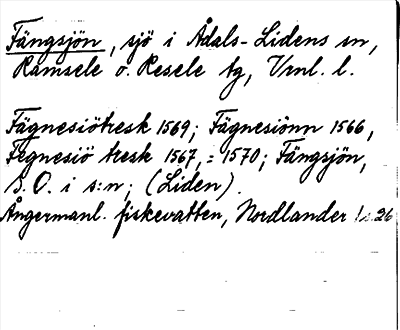 Fängsjön, sjö i Ådals-Lidens sn,
Ramsele o. Resele tg, Vrnl. l.
Fägnesiötresk 1569; Fägnesiönn 1566,
Fegnesiö tresk 1567, = 1570; Fängsjön,
s. O. i s:n; (Liden).
Ångermanl. fiskevatten, Nordlander s. 26